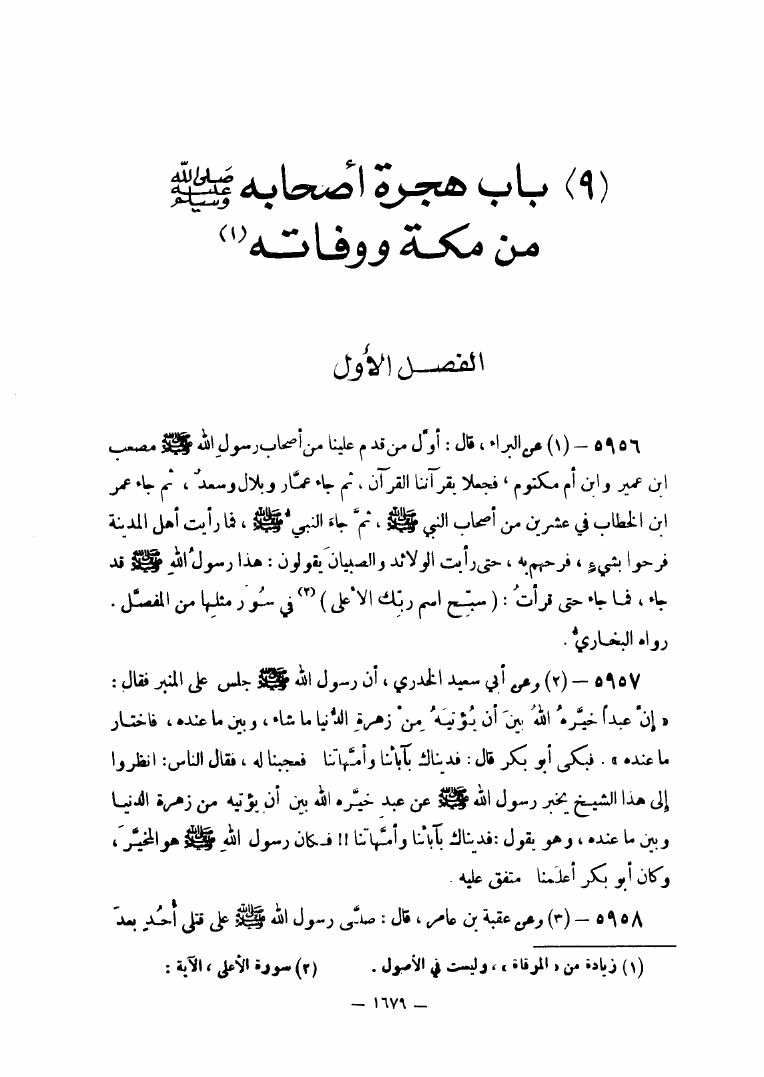 (٩) باب هجرة أصحابه ﷺ
من مكة ووفاته (١)
الفصل الأول
٥٩٥٦ – (١) عن البراء ، قال : أوَّل من قدم علينا من أصحاب رسولِ الله ﷺ مصعب
ابن عمير وابن أم مكتوم ، فجعلا يقرآننا القرآن ، ثم جاء عمَّار وبلال وسعدٌ ، ثم جاء عمر
ابن الخطاب في عشرين من أصحاب النبي ﷺ ، ثمَّ جاءَ النبيُّ ﷺ ، فما رأيت أهل المدينة
فرحوا بشيءٍ ، فرحهم به ، حتى رأيت الولائد والصبيان يقولون : هذا رسولُ اللهِ ﷺ قد
جاء ، فما جاء حتى قرأتُ : ( سبِّح اسم ربِّك الأعلى ) (٢) في سُوَر مثلها من المفصَّل .
رواه البخاريُّ .
٥٩٥٧ – (٢) وعن أبي سعيد الخدري ، أن رسول الله ﷺ جلس على المنبر فقال :
« إنَّ عبداً خيَّرهُ اللهُ بينَ أن يُؤتيَهُ مِنْ زهرةِ الدُّنيا ما شاء ، وبين ما عنده ، فاختار
ما عنده » . فبكى أبو بكر قال : فديناك بآبائنا وأمَّهاتنا فعجبنا له ، فقال الناس : انظروا
إلى هذا الشيخ يخبر رسول الله ﷺ عن عبدٍ خيَّره الله بين أن يؤتيه من زهرة الدنيا
وبين ما عنده ، وهو يقول : فديناك بآبائنا وأمَّهاتنا !! فكان رسول اللهِ ﷺ هو المخيَّرَ ،
وكان أبو بكر أعلَمنا متفق عليه .
٥٩٥٨ – (٣) وعن عقبة بن عامر ، قال : صلَّى رسول الله ﷺ على قتلى أُحُدٍ بعدَ
(١) زيادة من « الموفاة » ، وليست في الأصول . (٢) سورة الأعلى ، الآية :
– ١٦٧٩ –